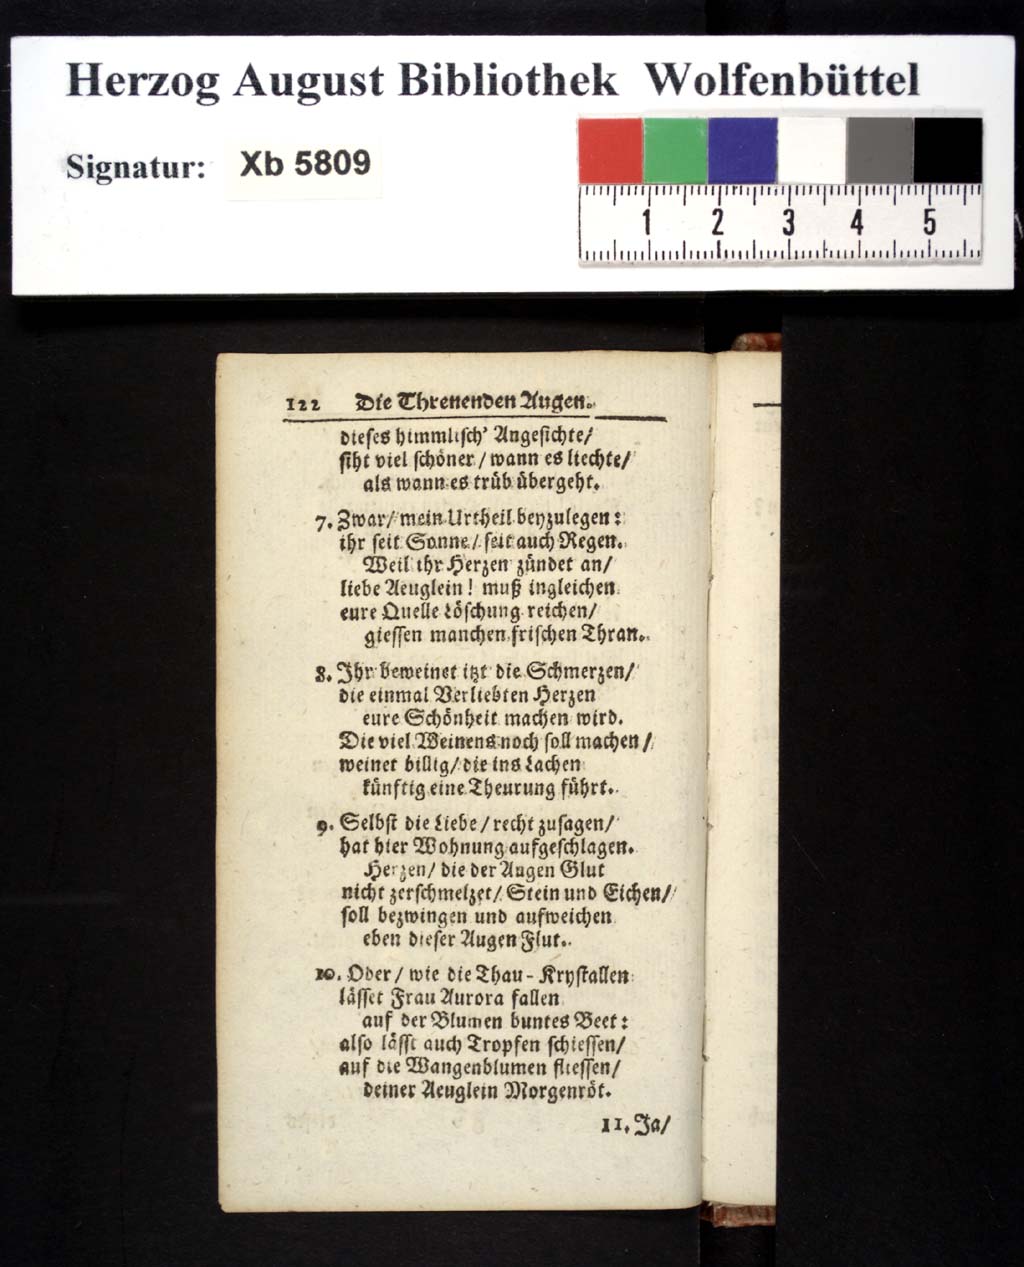 Herzog August Bibliothek Wolfenbüttel
Signatur: Xb 5809
1 2 3 4 5
122 Die Threnenden Augen.
dieses himmlisch' Angesichte/
siht viel schöner/ wann es liechte/
als wann es trüb übergeht.
7. Zwar/ mein Urtheil beyzulegen:
ihr seit Sonne/ seit auch Regen.
Weil ihr Herzen zündet an/
liebe Aeuglein! muß ingleichen
eure Quelle Löschung reichen/
giessen manchen frischen Thran.
8. Ihr beweinet itzt die Schmerzen/
die einmal Verliebten Herzen
eure Schönheit machen wird.
Die viel Weinens noch soll machen/
weinet billig/ die ins Lachen
künftig eine Theurung führt.
9. Selbst die Liebe/ recht zusagen/
hat hier Wohnung aufgeschlagen.
Herzen/ die der Augen Glut
nicht zerschmelzet/ Stein und Eichen/
soll bezwingen und aufweichen
eben dieser Augen Flut.
10. Oder/ wie die Thau-Krystallen
lässet Frau Aurora fallen
auf der Blumen buntes Beet:
also lässt auch Tropfen schiessen/
auf die Wangenblumen fliessen/
deiner Aeuglein Morgenröt.
11. Ja/